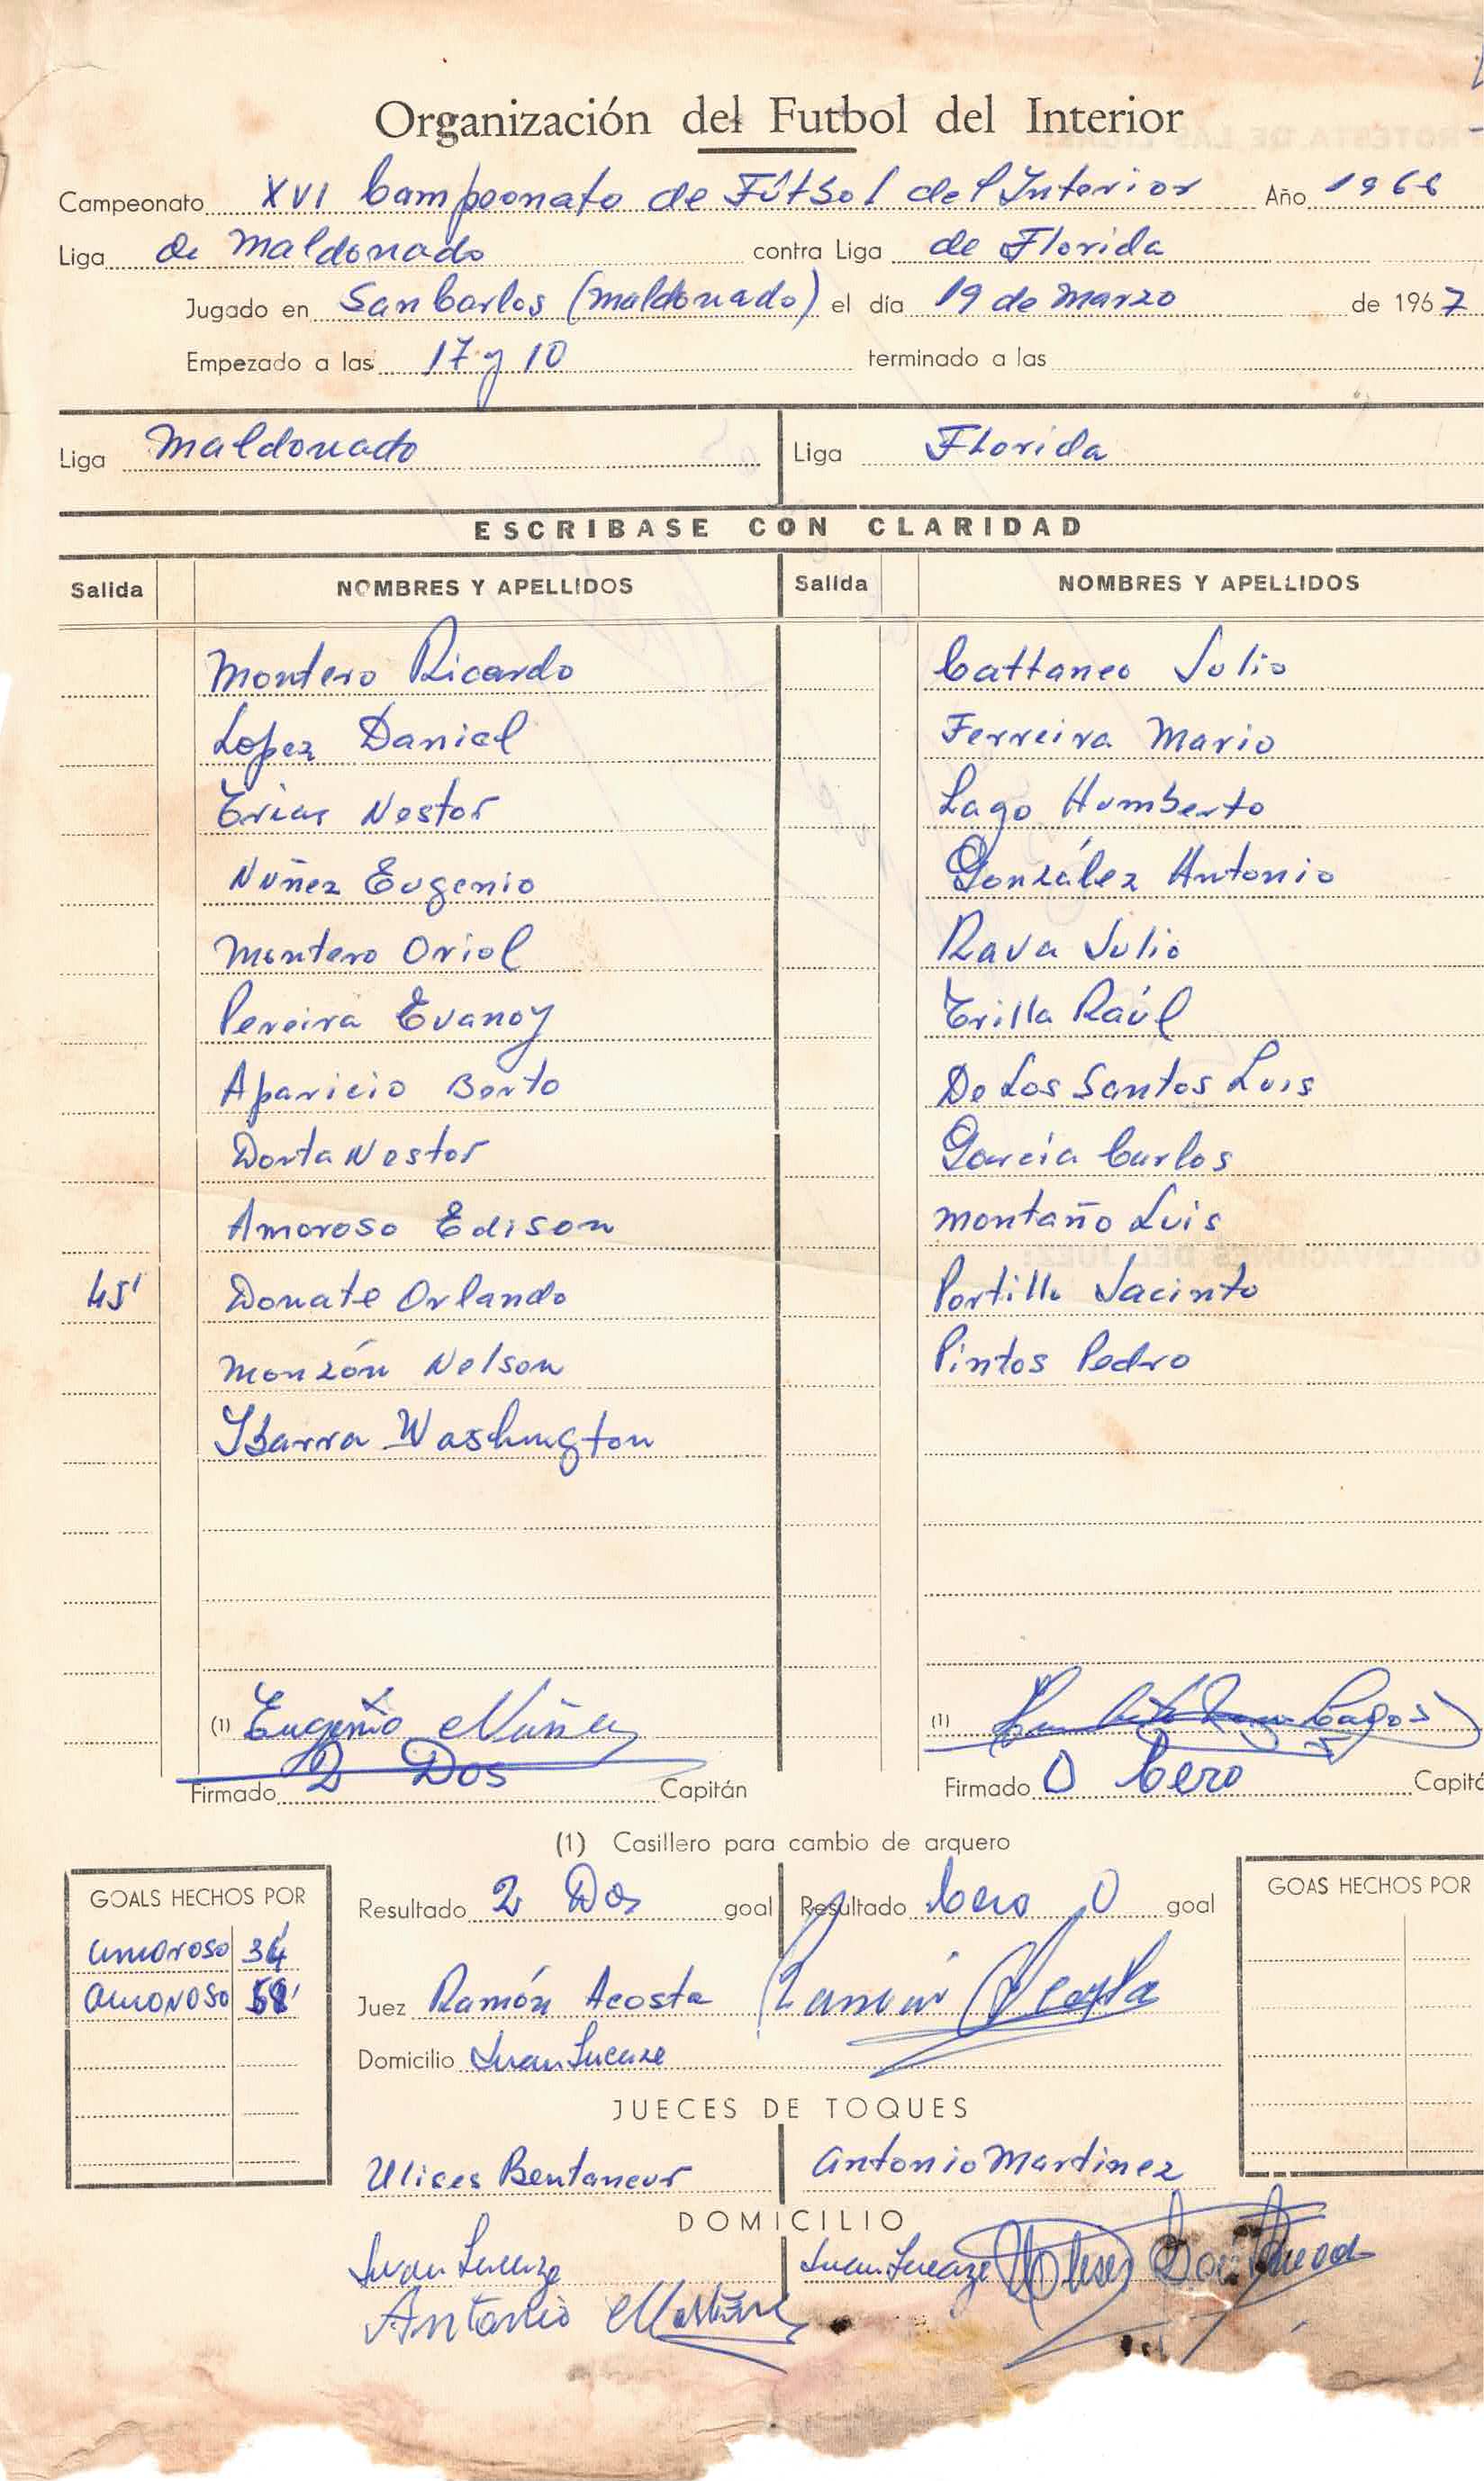 Organización del Futbol del Interior
Campeonato XVI Campeonato de Fútbol del Interior Año 1966
Liga de Maldonado contra Liga de Florida
Jugado en San Carlos (Maldonado) el día 19 de Marzo de 1967
Empezado a las 17 y 10 terminado a las
Liga Maldonado Liga Florida
ESCRIBASE CON CLARIDAD
Salida NOMBRES Y APELLIDOS Salida NOMBRES Y APELLIDOS
Montero Ricardo Cattaneo Julio
Lopez Daniel Ferreira Mario
Erias Nestor Lago Humberto
Nuñez Eugenio González Antonio
Montero Oriol Rava Julio
Pereira Evanoy Trilla Raúl
Aparicio Berto De Los Santos Luis
Dorta Nestor García Carlos
Amoroso Edison Montaño Luis
45' Donate Orlando Portillo Jacinto
Monzón Nelson Pintos Pedro
Ibarra Washington
(1) Eugenio Núñez (1)
2 Dos
Firmado Capitán Firmado 0 Cero Capitá
(1) Casillero para cambio de arquero
GOALS HECHOS POR Resultado 2 Dos goal Resultado Cero 0 goal GOAS HECHOS POR
Amoroso 34
Amoroso Juez Ramón Acosta Ramón Acosta
Domicilio Juan Lacaze
JUECES DE TOQUES
Ulises Bentancur Antonio Martinez
DOMICILIO
Juan Lacaze Juan Lacaze Ulises
Antonio Martínez